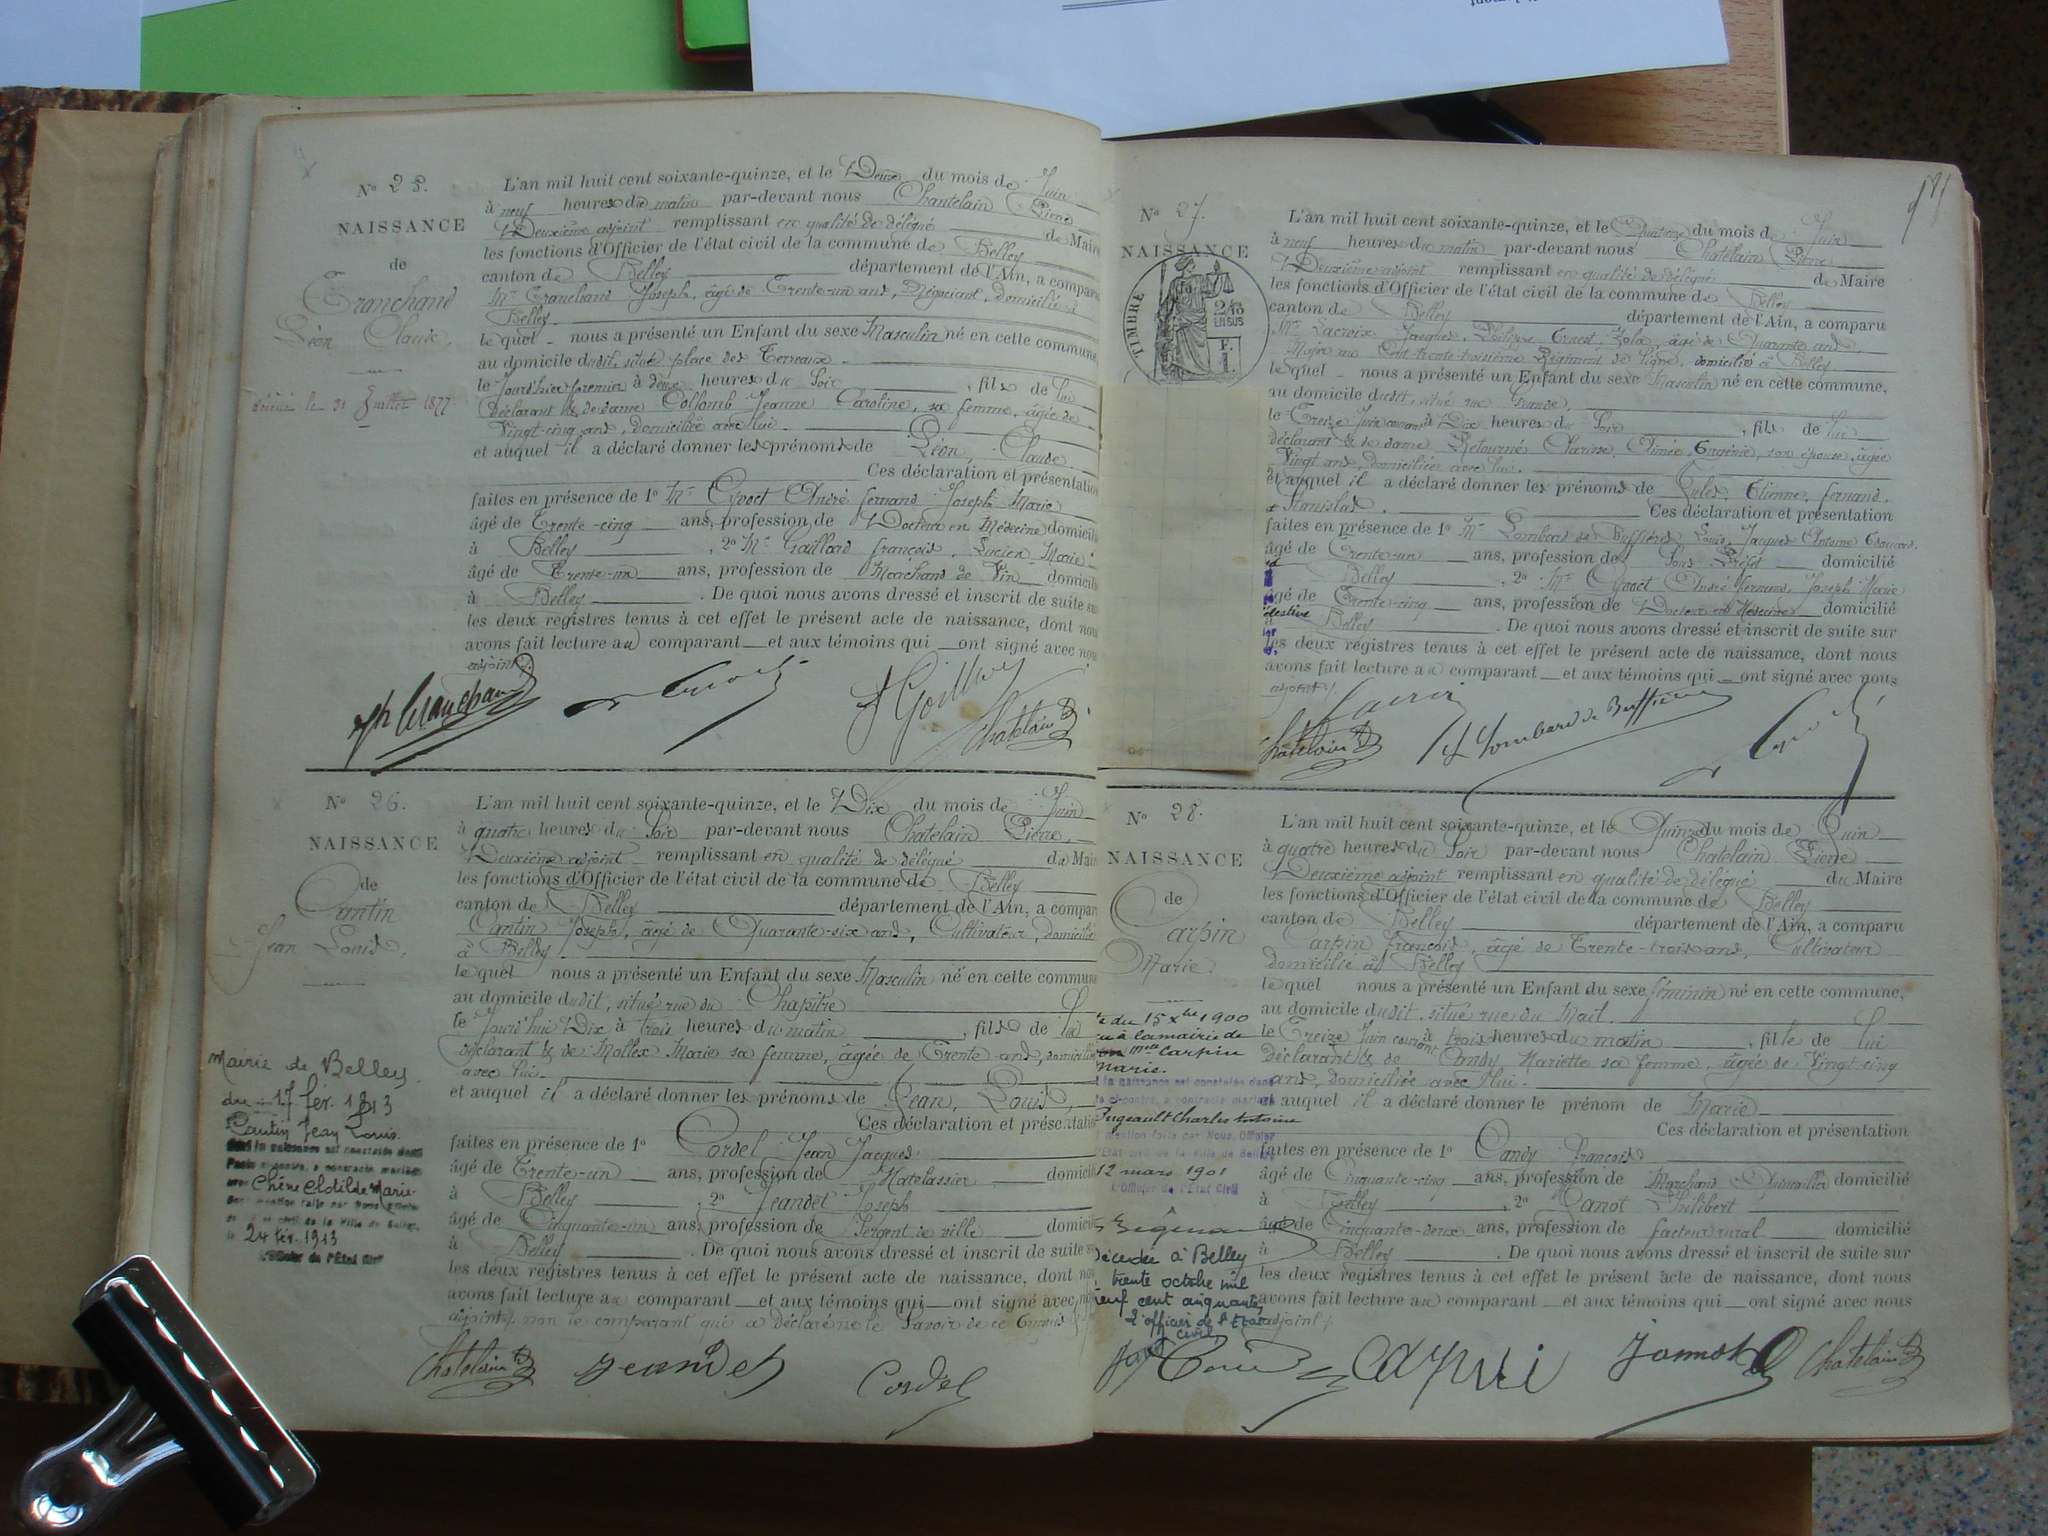 N° 25.
NAISSANCE
de
Tranchand
Léon Claude.
décédé le 31 Juillet 1877
L'an mil huit cent soixante-quinze, et le Deux du mois de Juin
à neuf heures du matin par-devant nous Chantelain Pierre
Deuxième adjoint remplissant en qualité de délégué de Maire
les fonctions d'Officier de l'état civil de la commune de Belley
canton de Belley département de l'Ain, a comparu
Mr Tranchand Joseph, âgé de Trente-un ans, Négociant, domicilié à
Belley.
lequel nous a présenté un Enfant du sexe Masculin né en cette commune,
au domicile dudit, situé place des Terreaux
le Jourd'hier premier à deux heures du Soir, fils de lui
déclarant & de dame Collomb Jeanne Caroline, sa femme, âgée de
Vingt-cinq ans, domiciliée avec lui.
et auquel il a déclaré donner les prénoms de Léon, Claude.
Ces déclaration et présentation
faites en présence de 1° Mr Cyoct André fernand Joseph Marie
âgé de Trente-cinq ans, profession de Docteur en Médecine domicilié
à Belley, 2° Mr Gaillard françois, Lucien, Marie
âgé de Trente-un ans, profession de Marchand de Vin domicilié
à Belley. De quoi nous avons dressé et inscrit de suite sur
les deux registres tenus à cet effet le présent acte de naissance, dont nous
avons fait lecture au comparant et aux témoins qui ont signé avec nous
adjoint.
Jph Tranchand
Chatelain
N° 26.
NAISSANCE
de
Cantin
Jean Louis.
Mairie de Belley.
du 17 fév. 1913
Cantin Jean Louis
dont la naissance est constatée dans
l'acte ci-contre, a contracté mariage
avec Chêne Clotilde Marie
24 fév. 1913
L'Officier de l'Etat Civil
L'an mil huit cent soixante-quinze, et le Dix du mois de Juin
à quatre heures du Soir par-devant nous Chatelain Pierre,
Deuxième adjoint remplissant en qualité de délégué du Maire
les fonctions d'Officier de l'état civil de la commune de Belley
canton de Belley département de l'Ain, a comparu
Cantin Joseph, âgé de Quarante-six ans, Cultivateur, domicilié
à Belley.
lequel nous a présenté un Enfant du sexe Masculin né en cette commune
au domicile dudit, situé rue du Chapitre
le Jourd'hui Dix à trois heures du matin, fils de lui
déclarant & de Mollex Marie sa femme, âgée de Trente ans, domiciliée
avec lui.
et auquel il a déclaré donner les prénoms de Jean, Louis,
Ces déclaration et présentation
faites en présence de 1° Cordel Jean Jacques
âgé de Trente-un ans, profession de Matelassier domicilié
à Belley, 2° Jeandet Joseph
âgé de Cinquante-un ans, profession de Sergent de ville domicilié
à Belley. De quoi nous avons dressé et inscrit de suite sur
les deux registres tenus à cet effet le présent acte de naissance, dont nous
avons fait lecture au comparant et aux témoins qui ont signé avec nous
adjoint, non le comparant qui a déclaré ne le Savoir de ce Enquis
Chatelain Jeandet Cordel
N° 27.
NAISSANCE
TIMBRE
2/10
EN SUS
F.
1
L'an mil huit cent soixante-quinze, et le Quatorze du mois de Juin
à neuf heures du matin par-devant nous Chatelain Pierre
Deuxième adjoint remplissant en qualité de délégué de Maire
les fonctions d'Officier de l'état civil de la commune de Belley
canton de Belley département de l'Ain, a comparu
Mr Lacroix Jacques, Philippe, Ernest, Zola, âgé de Quarante ans,
Major au Cent trente troisième Régiment de ligne, domicilié à Belley
lequel nous a présenté un Enfant du sexe Masculin né en cette commune,
au domicile dudit, situé rue Grande,
le Treize Juin courant à Dix heures du Soir, fils de lui
déclarant & de dame Retourné Clarisse, Aimée, Eugénie, son épouse, âgée
Vingt ans, domiciliée avec lui.
et auquel il a déclaré donner les prénoms de Jules, Etienne, fernand,
Stanislas. Ces déclaration et présentation
faites en présence de 1° Mr Lombard de Buffières Louis, Jacques Antoine Edouard
âgé de Trente-un ans, profession de Sous Préfet domicilié
Belley, 2° Mr Cyoct André fernand Joseph Marie
âgé de Trente-cinq ans, profession de Docteur en Médecine domicilié
Belley. De quoi nous avons dressé et inscrit de suite sur
les deux registres tenus à cet effet le présent acte de naissance, dont nous
avons fait lecture au comparant et aux témoins qui ont signé avec nous
adjoint.
Lacroix
Chatelain Lombard de Buffières
N° 28.
NAISSANCE
de
Carpin
Marie.
du 15 Xbre 1900
à la mairie de
Melle Carpin
Marie.
la naissance est constatée dans
ci-contre, a contracté mariage
Pugeault Charles Antoine
mention faite par Nous, Officier
l'Etat civil de la Ville de Belley
12 mars 1901
L'Officier de l'Etat Civil
Décédée à Belley
trente octobre mil
neuf cent cinquante
L'officier de l'Etat
civil,
L'an mil huit cent soixante-quinze, et le Quinze du mois de Juin
à quatre heures du Soir par-devant nous Chatelain Pierre
Deuxième adjoint remplissant en qualité de délégué du Maire
les fonctions d'Officier de l'état civil de la commune de Belley
canton de Belley département de l'Ain, a comparu
Carpin françois, âgé de Trente-trois ans, Cultivateur
domicilié à Belley
lequel nous a présenté un Enfant du sexe féminin né en cette commune,
au domicile dudit, situé rue du Mail.
le Treize Juin courant à trois heures du matin, fille de lui
déclarant & de Candy Mariette sa femme, âgée de Vingt cinq
ans, domiciliée avec lui.
et auquel il a déclaré donner le prénom de Marie
Ces déclaration et présentation
faites en présence de 1° Candy françois
âgé de Cinquante-cinq ans, profession de Marchand Quincaillier domicilié
à Belley, 2° Janot Philibert
âgé de Cinquante-deux ans, profession de facteur rural domicilié
à Belley. De quoi nous avons dressé et inscrit de suite sur
les deux registres tenus à cet effet le présent acte de naissance, dont nous
avons fait lecture au comparant et aux témoins qui ont signé avec nous
adjoint.
Chatelain